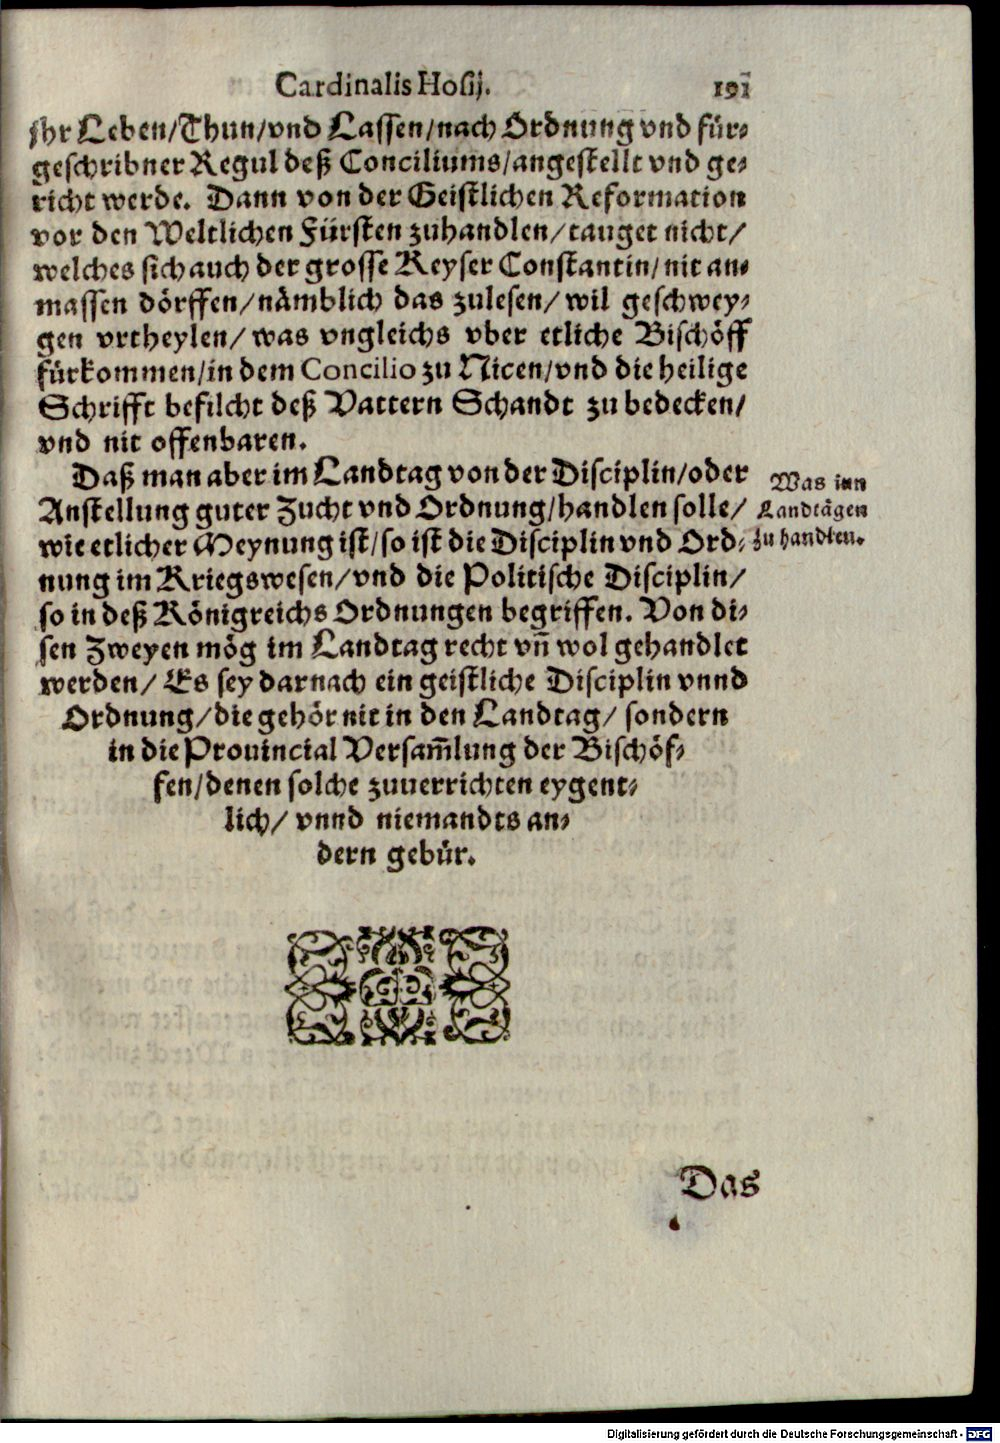 Cardinalis Hosij. 191
jhr Leben/Thun/vnd Lassen/nach Ordnung vnd für-
geschribner Regul deß Conciliums/angestellt vnd ge-
richt werde. Dann von der Geistlichen Reformation
vor den Weltlichen Fürsten zuhandlen/tauget nicht/
welches sich auch der grosse Keyser Constantin/nit an-
massen dörffen/nämblich das zulesen/wil geschwey-
gen vrtheylen/was vngleichs vber etliche Bischöff
fürkommen/in dem Concilio zu Nicen/vnd die heilige
Schrifft befilcht deß Vattern Schandt zu bedecken/
vnd nit offenbaren.
Daß man aber im Landtag von der Disciplin/oder
Anstellung guter Zucht vnd Ordnung/handlen solle/
wie etlicher Meynung ist/so ist die Disciplin vnd Ord-
nung im Kriegswesen/vnd die Politische Disciplin/
so in deß Königreichs Ordnungen begriffen. Von di-
sen Zweyen mög im Landtag recht vn̄ wol gehandlet
werden/ Es sey darnach ein geistliche Disciplin vnnd
Ordnung/die gehör nit in den Landtag/ sondern
in die Prouincial Versam̄lung der Bischöf-
fen/denen solche zuuerrichten eygent-
lich/ vnnd niemandts an-
dern gebür.
Was inn
Landtägen
zu handlen.
Das
Digitalisierung gefördert durch die Deutsche Forschungsgemeinschaft - DFG